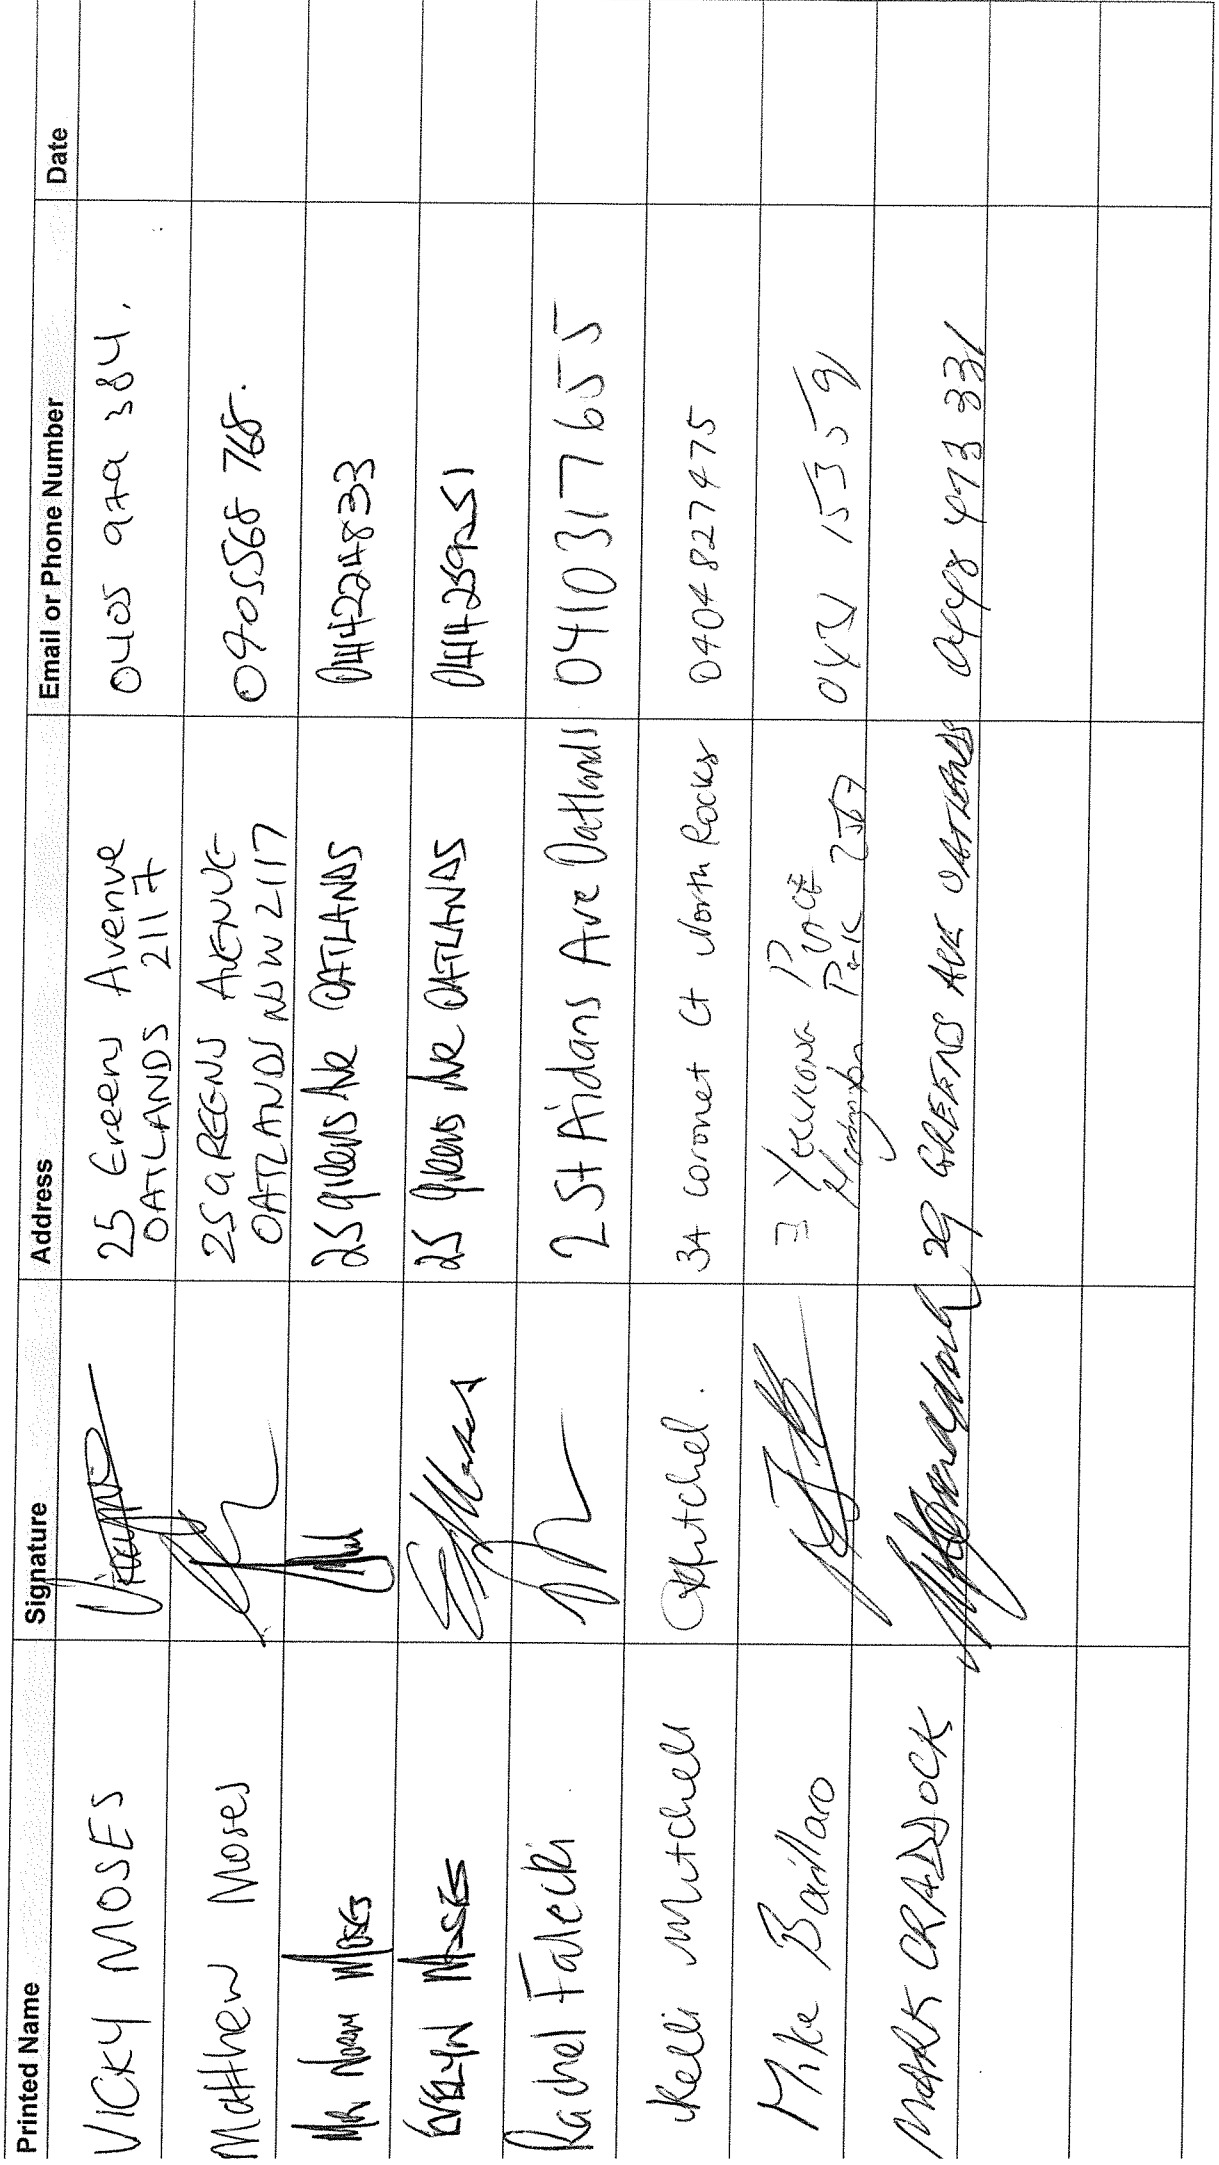 Printed Name Signature Address Email or Phone Number Date
VICKY MOSES 25 Greens Avenue 0405 979 384.
OATLANDS 2117
Matthew Moses 25 GREENS AVENUE 0405568 768.
OATLANDS NSW 2117
Mr Norm Moses 25 greens Ave OATLANDS 0414224833
EVELYN MOSES 25 greens Ave OATLANDS 0414259251
Rachel Falecki 2 St Aidans Ave Oatlands 0410317655
Kelli Mitchell 34 Coronet Ct North Rocks 0404827475
Mike Barillaro 3 PLACE 1535 59
Park 2567
MARK CRADDOCK 29 GREENS AVE OATLANDS 0448 473 331